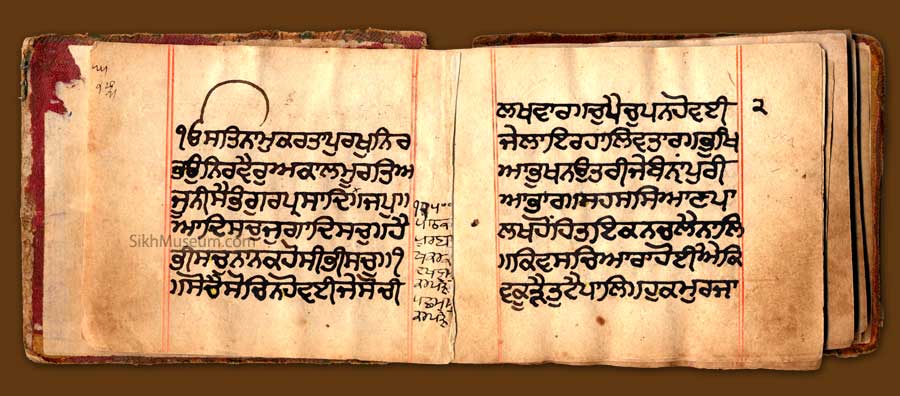 ੴਸਤਿਨਾਮੁਕਰਤਾਪੁਰਖੁਨਿਰ
ਭਉਨਿਰਵੈਰੁਅਕਾਲਮੂਰਤਿਅ
ਜੂਨੀਸੈਭੰਗੁਰਪ੍ਰਸਾਦਿ॥ਜਪੁ॥
ਆਦਿਸਚੁਜੁਗਾਦਿਸਚੁ॥ਹੈ
ਭੀਸਚੁਨਾਨਕਹੋਸੀਭੀਸਚੁ॥੧
॥ਸੋਚੈਸੋਚਿਨਹੋਵਈਜੇਸੋਚੀ
SikhMuseum.com
ਲਖਵਾਰ॥ਚੁਪੈਚੁਪਨਹੋਵਈ
੨
ਜੇਲਾਇਰਹਾਲਿਵਤਾਰ॥ਭੁਖਿ
ਆਭੁਖਨਉਤਰੀਜੇਬੰਨਾਪੁਰੀ
ਆਭਾਰ॥ਸਹਸਸਿਆਣਪਾ
ਲਖਹੋਹਿਤਇਕਨਚਲੈਨਾਲਿ
॥ਕਿਵਸਚਿਆਰਾਹੋਈਐਕਿ
ਵਕੂੜੈਤੁਟੈਪਾਲਿ॥ਹੁਕਮੁਰਜਾ